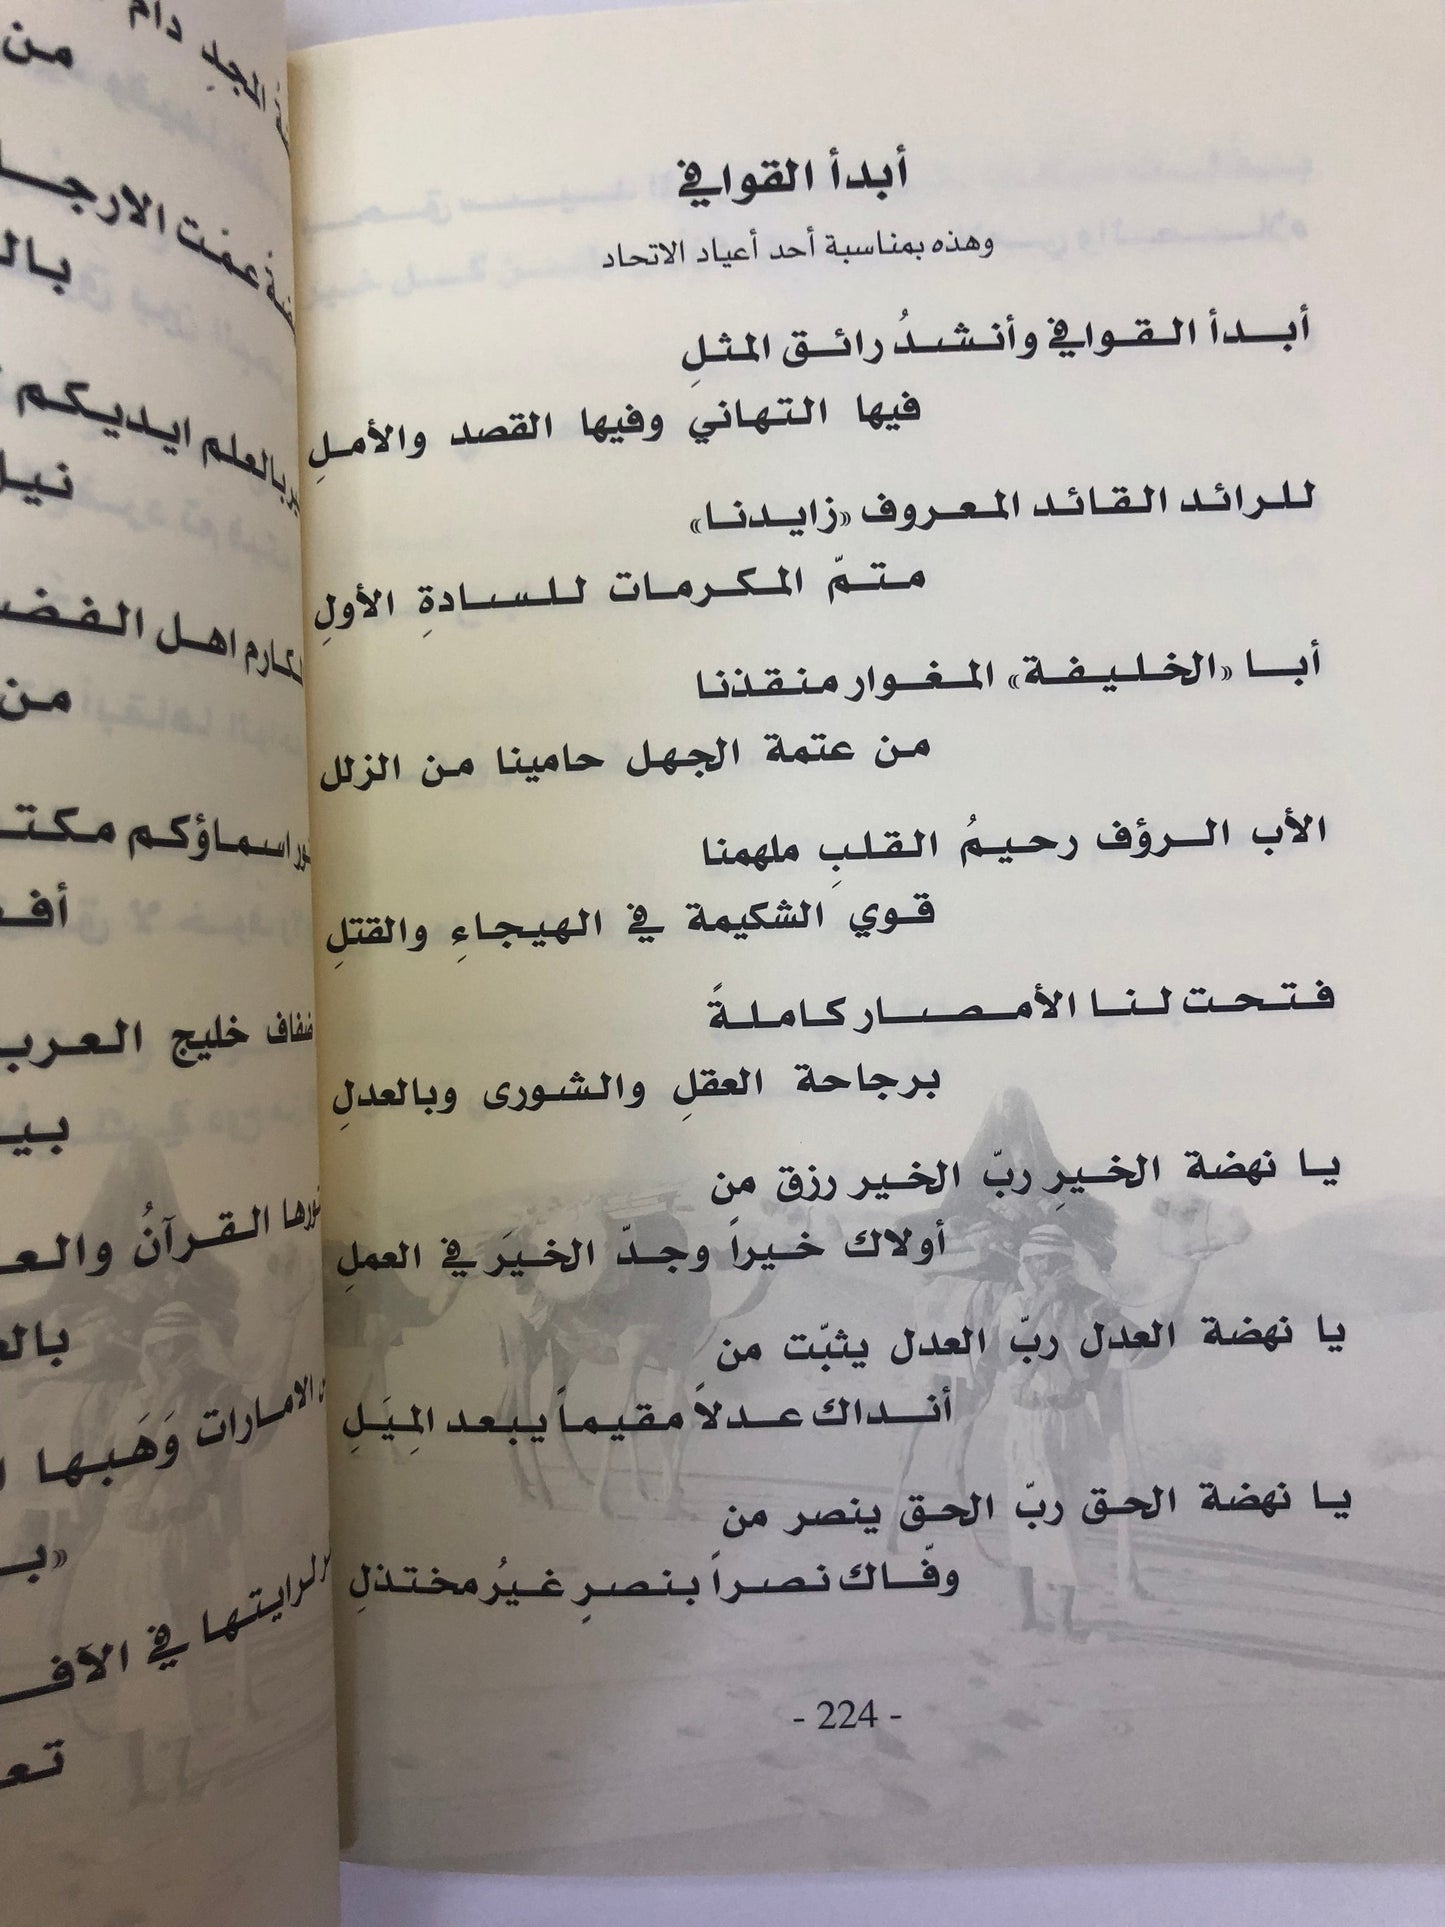 أبدأ القوافي
وهذه بمناسبة أحد أعياد الاتحاد
أبدأ القوافي وأنشدُ رائق المثلِ
فيها التهاني وفيها القصد والأملِ
للرائد القائد المعروف «زايدنا»
متمّ المكرمات للسادةِ الأولِ
أبا «الخليفة» المغوار منقذنا
من عتمة الجهل حامينا من الزلل
الأب الرؤف رحيمُ القلبِ ملهمنا
قوي الشكيمة في الهيجاءِ والقتلِ
فتحت لنا الأمصار كاملةً
برجاحة العقلِ والشورى وبالعدلِ
يا نهضة الخيرِ ربّ الخير رزق من
أولاك خيراً وجدّ الخيَر في العملِ
يا نهضة العدل ربّ العدل يثبّت من
أنداك عدلاً مقيماً يبعد المِيَلِ
يا نهضة الحق ربّ الحق ينصر من
وفّاك نصراً بنصرٍ غيرُ مختذلِ
- 224 -
المجدِ دام
من
عمّت الارجا
بال
بالعلم ايديكم
نيل
اهل الفض
من
اسماؤكم مكت
أف
ضفاف خليج العرب
بي
القرآنُ والع
بالع
الامارات وَهَبها
«ب
لرايتها في الآف
تع